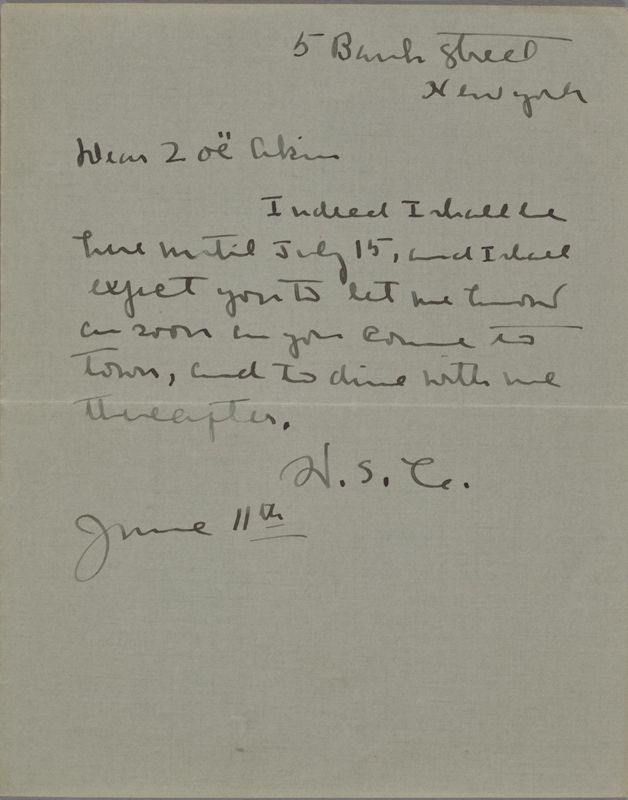 5 Bank Street
New York
Dear Zoë Akins
Indeed I shall be
here until July 15, and I shall
expect you to let me know
as soon as you come to
town, and to dine with me
thereafter.
W. S. C.
June 11th